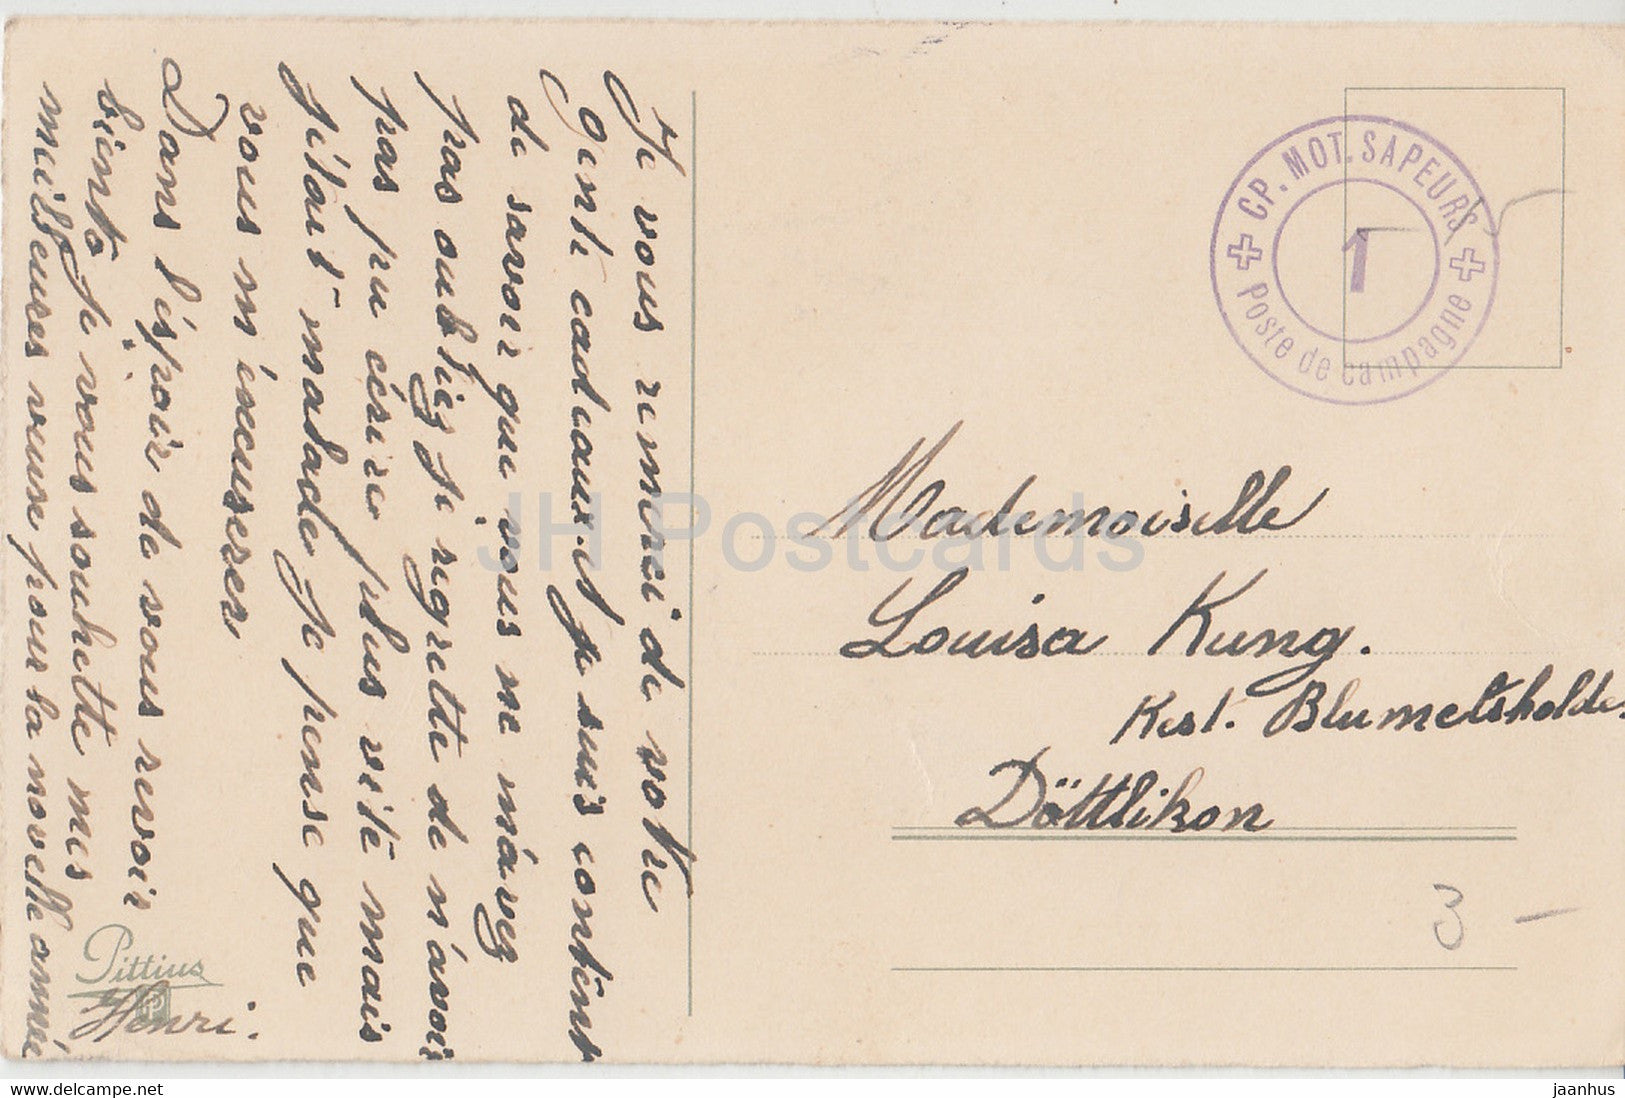 Je vous remerci de votre
genti cadeaux. et je suis contient
de savoir que vous me m'avez
pas oubliez je regrette de n'avoir
pas pu écrire plus vite mais
j'étais malade, je pense que
vous m'éxcuseres.
Dans l'éspoir de vous revoir
bientô je vous souhette mes
meilleures veuse pour la novelle anné
Henri.
Pittius
P
CP. MOT. SAPEURS
1
Poste de campagne
Mademoiselle
Louisa Kung.
Rest. Blumetshalde
Döttlikon
3 –
JH Postcards
www.delcampe.net
jaanhus